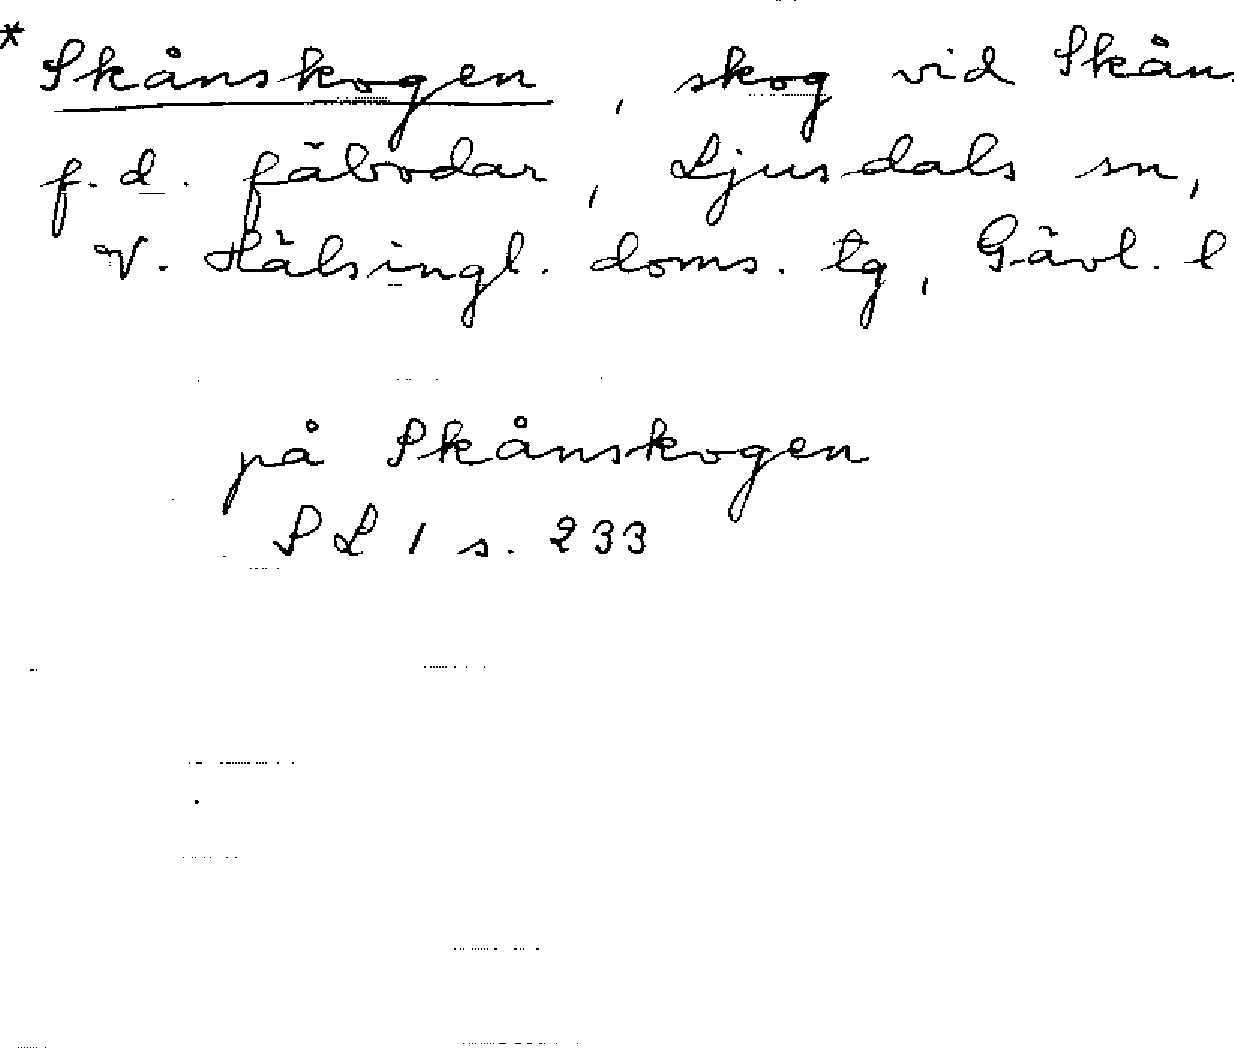 * Skånskogen, skog vid Skån
f.d. fäbodar, Ljusdals sn,
V. Hälsingl. doms. tg, Gävl. l
på Skånskogen
SL 1 s. 233